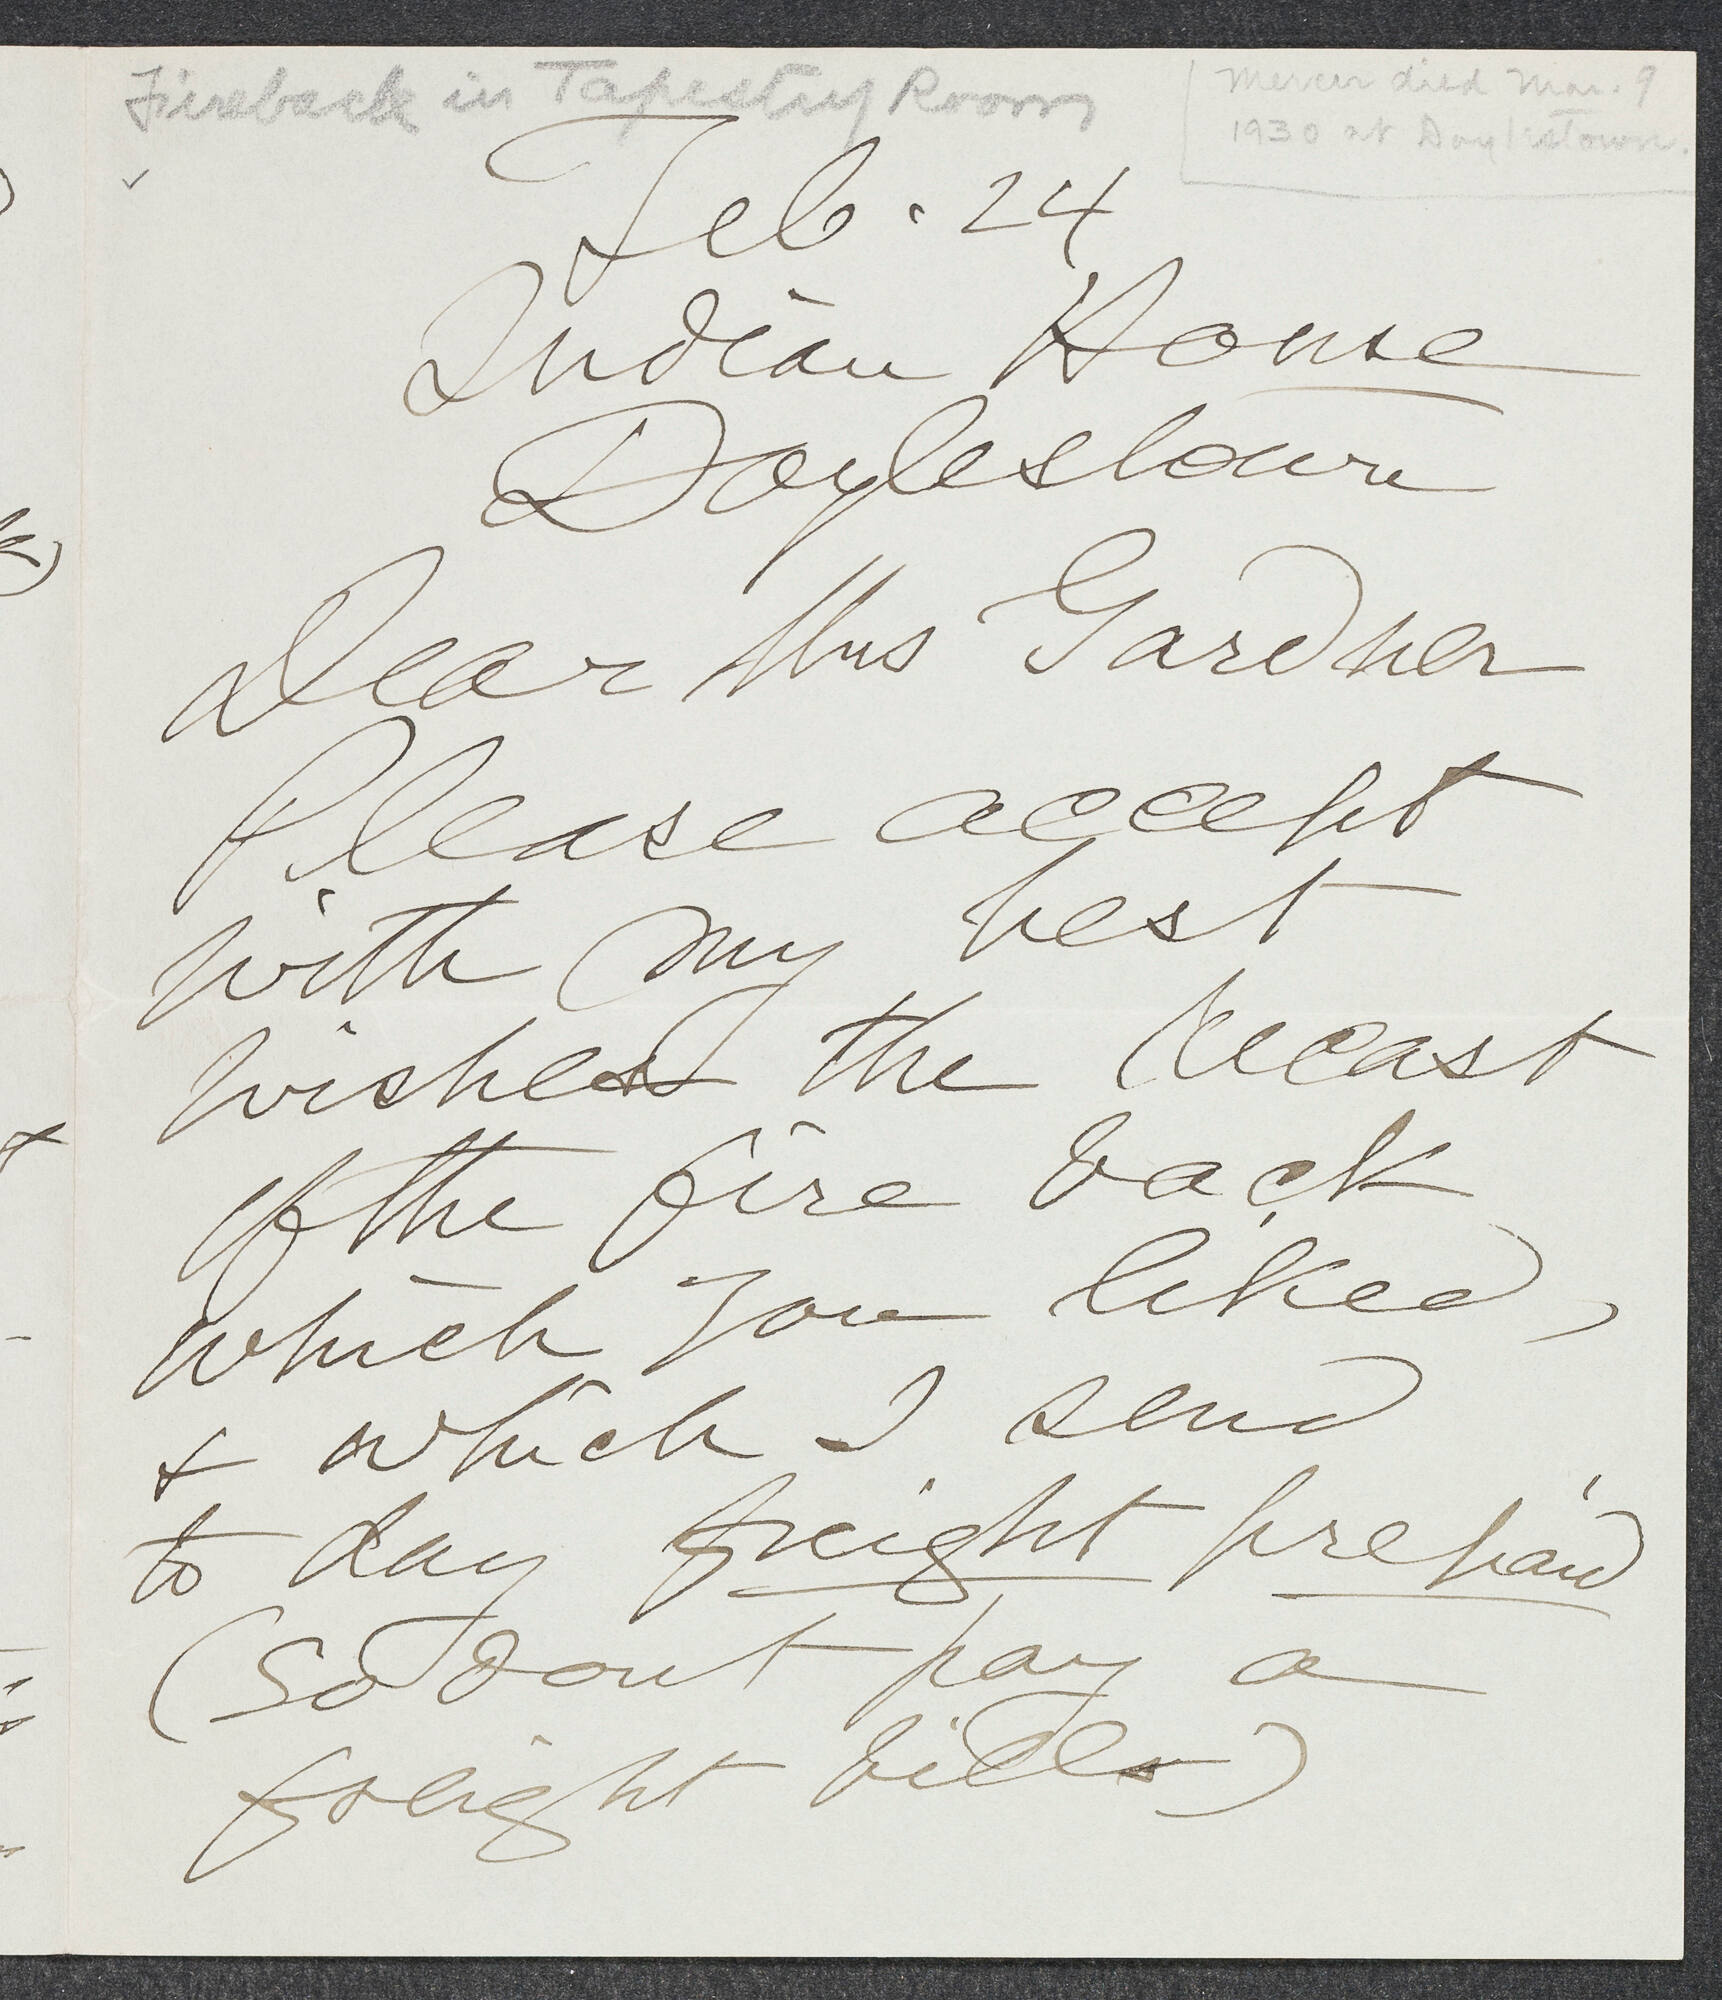 Fireback in Tapestry Room
Mercer died Mar. 9
1930 at Doylestown.
Feb. 24
Indian House
Doylestown
Dear Mrs Gardner
Please accept
with my best
wishes the recast
of the fire back
which you liked,
+ which I send
to day freight prepaid
(So dont pay a
freight bills)